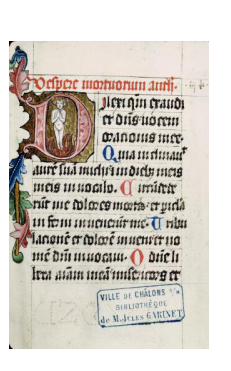 Vespere mortuorum anth.
Dilexi qm̄ exaudi
et dn̄s vocem
orationis mee.
Quia inclinauit
aurē suā michi et in dieb; meis
meis inuocabo. Circūdede
rūt me dolores mortis et picla
inferni inuenerūt me. Tribu
lacionē et dolorē inueni et no
mē dn̄i inuocaui. O dn̄e li
bera aīam meā misericors et
VILLE DE CHÂLONS S/M
BIBLIOTHÈQUE
de M. JULES GARINET